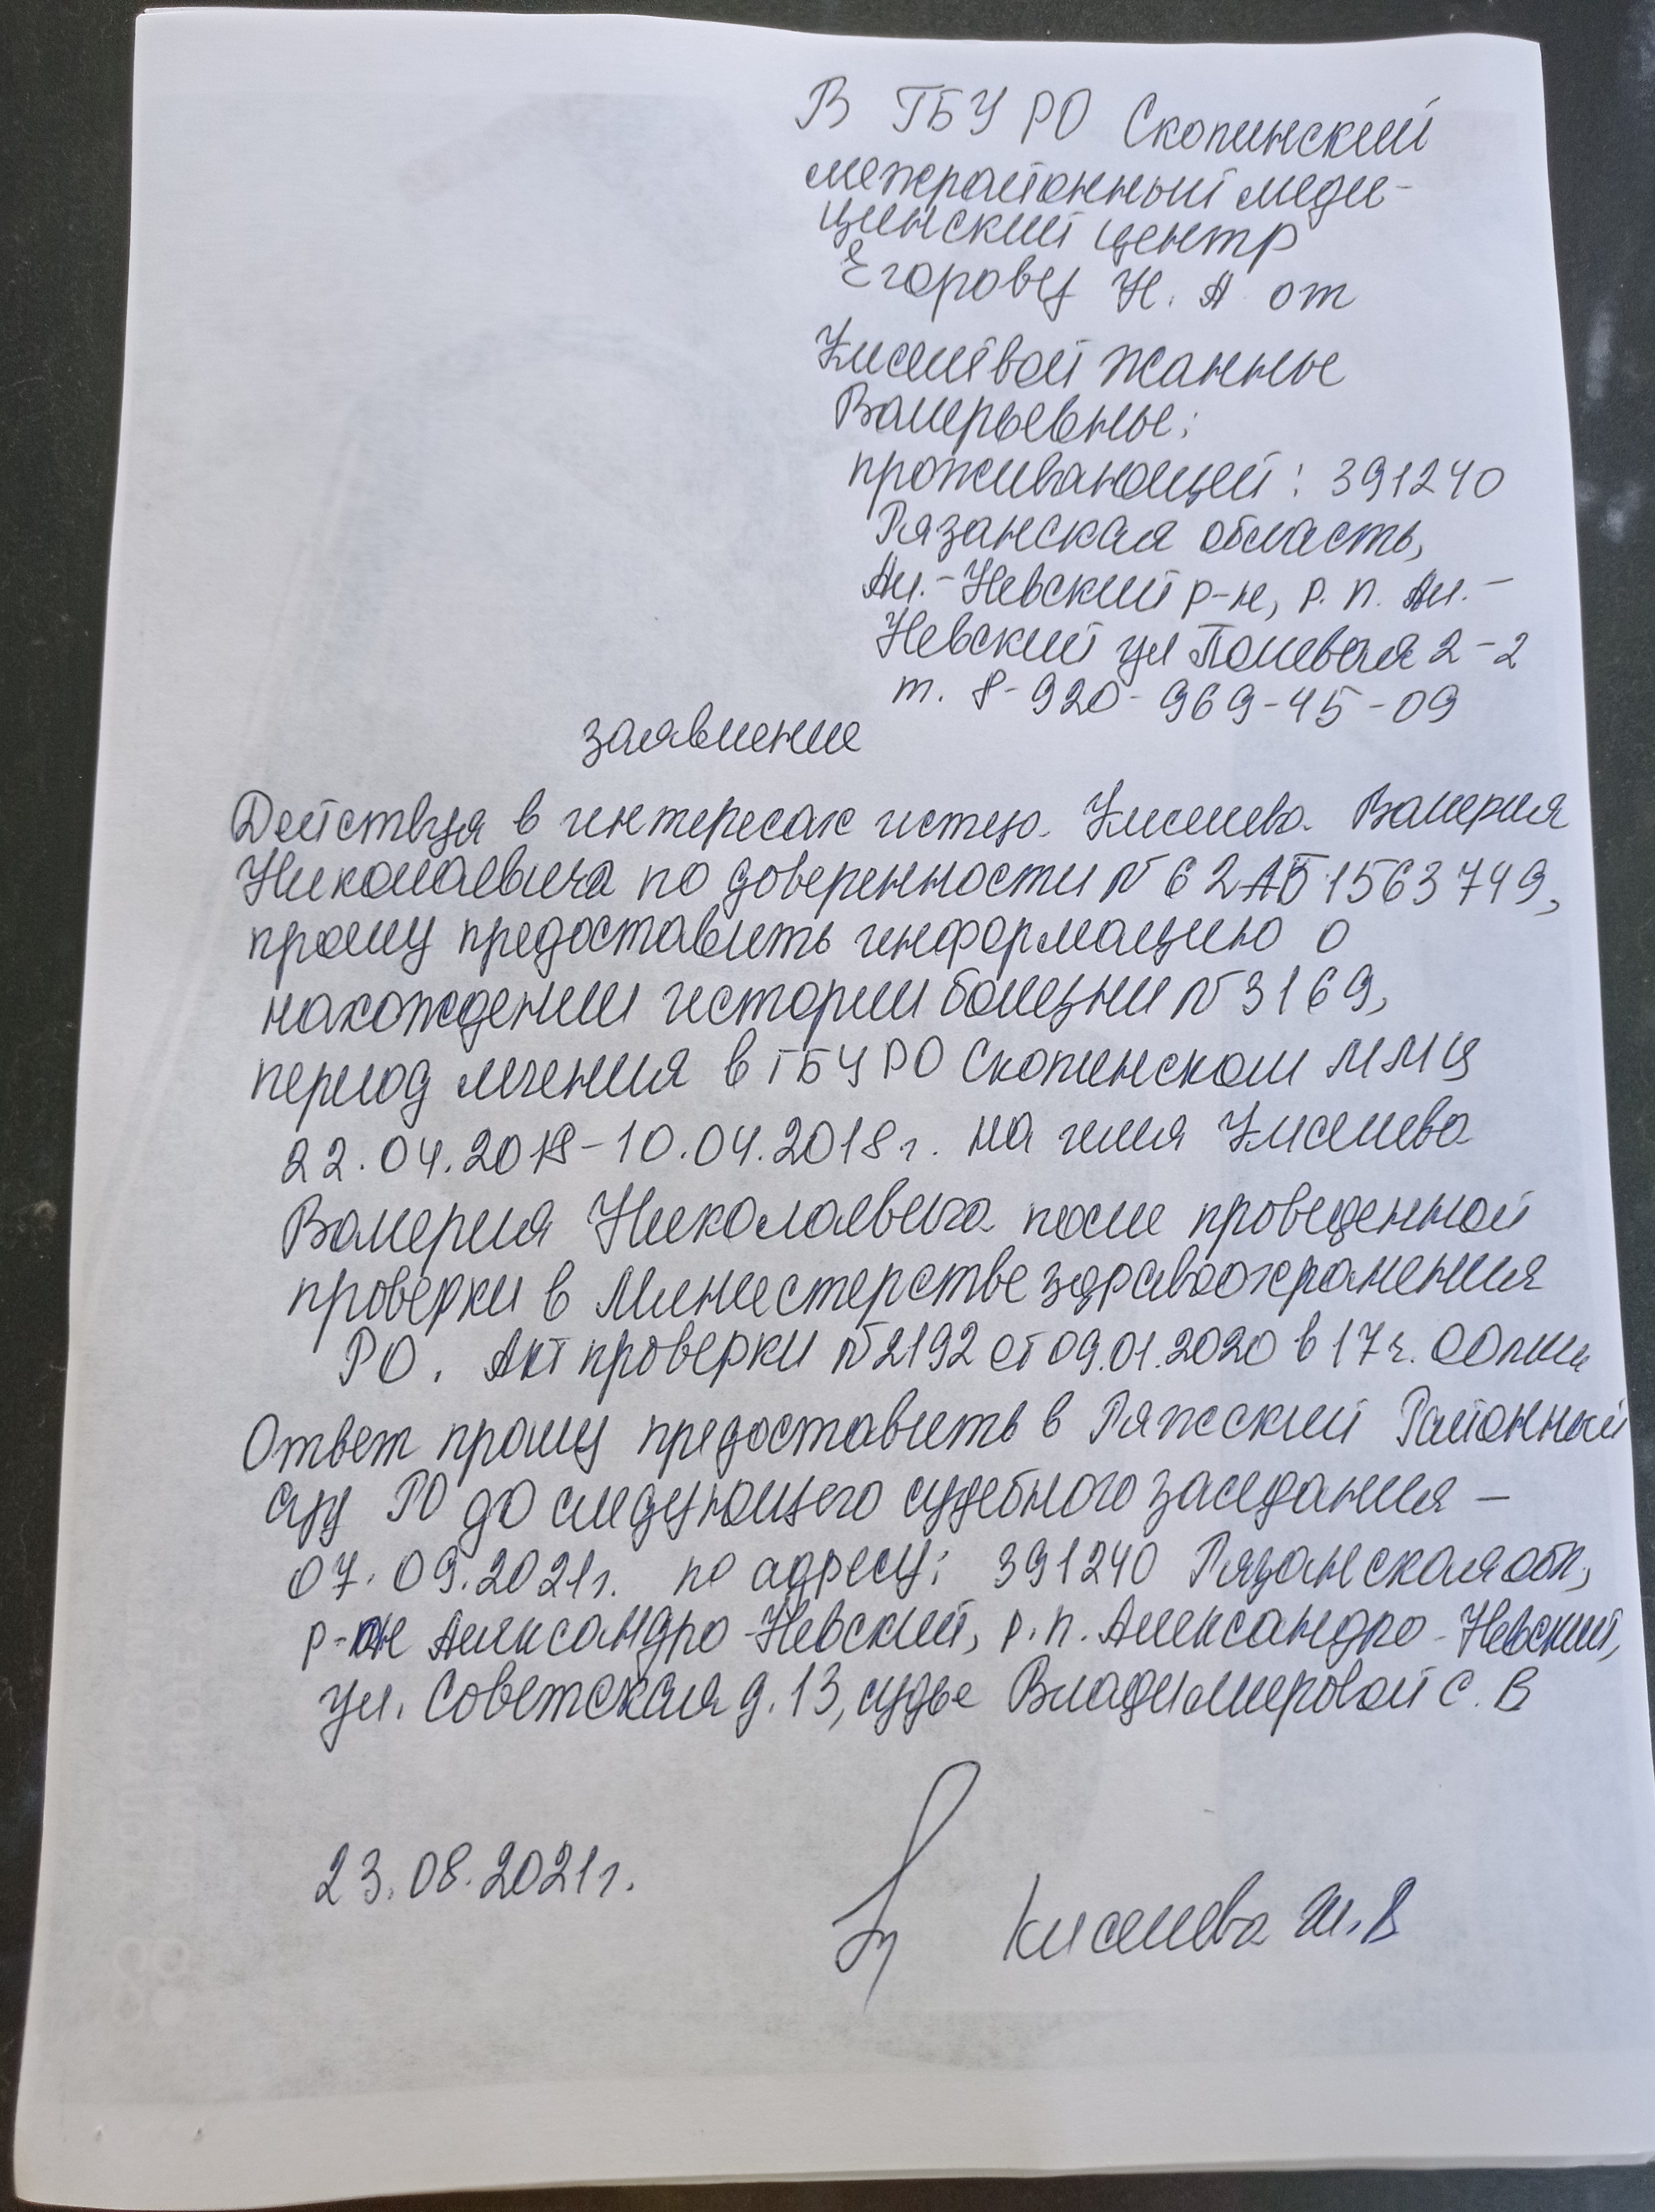 В ГБУ РО Скопинский
межрайонный меди-
цинский центр
Егорову Н. А от
Киселёвой Жанны
Валерьевны;
проживающей: 391240
Рязанская область,
Ал.-Невский р-н, р. п. Ал.-
Невский ул Полевая 2-2
т. 8-920-969-45-09
заявление
Действуя в интересах истца Киселева Валерия
Николаевича по доверенности № 62АБ1563749,
прошу предоставить информацию о
нахождении истории болезни № 3169,
период лечения в ГБУ РО Скопинском ММЦ
22.04.2018-10.04.2018г. на имя Киселева
Валерия Николаевича после проведенной
проверки в Министерстве здравоохранения
РО. Акт проверки № 2192 от 09.01.2020 в 17 ч. 00 мин
Ответ прошу предоставить в Ряжский Районный
суд РО до следующего судебного заседания –
07.09.2021г. по адресу: 391240 Рязанская обл,
р-он Александро-Невский, р.п. Александро-Невский,
ул. Советская д. 13, судье Владимировой С. В
23.08.2021г.
Киселева Ж. В